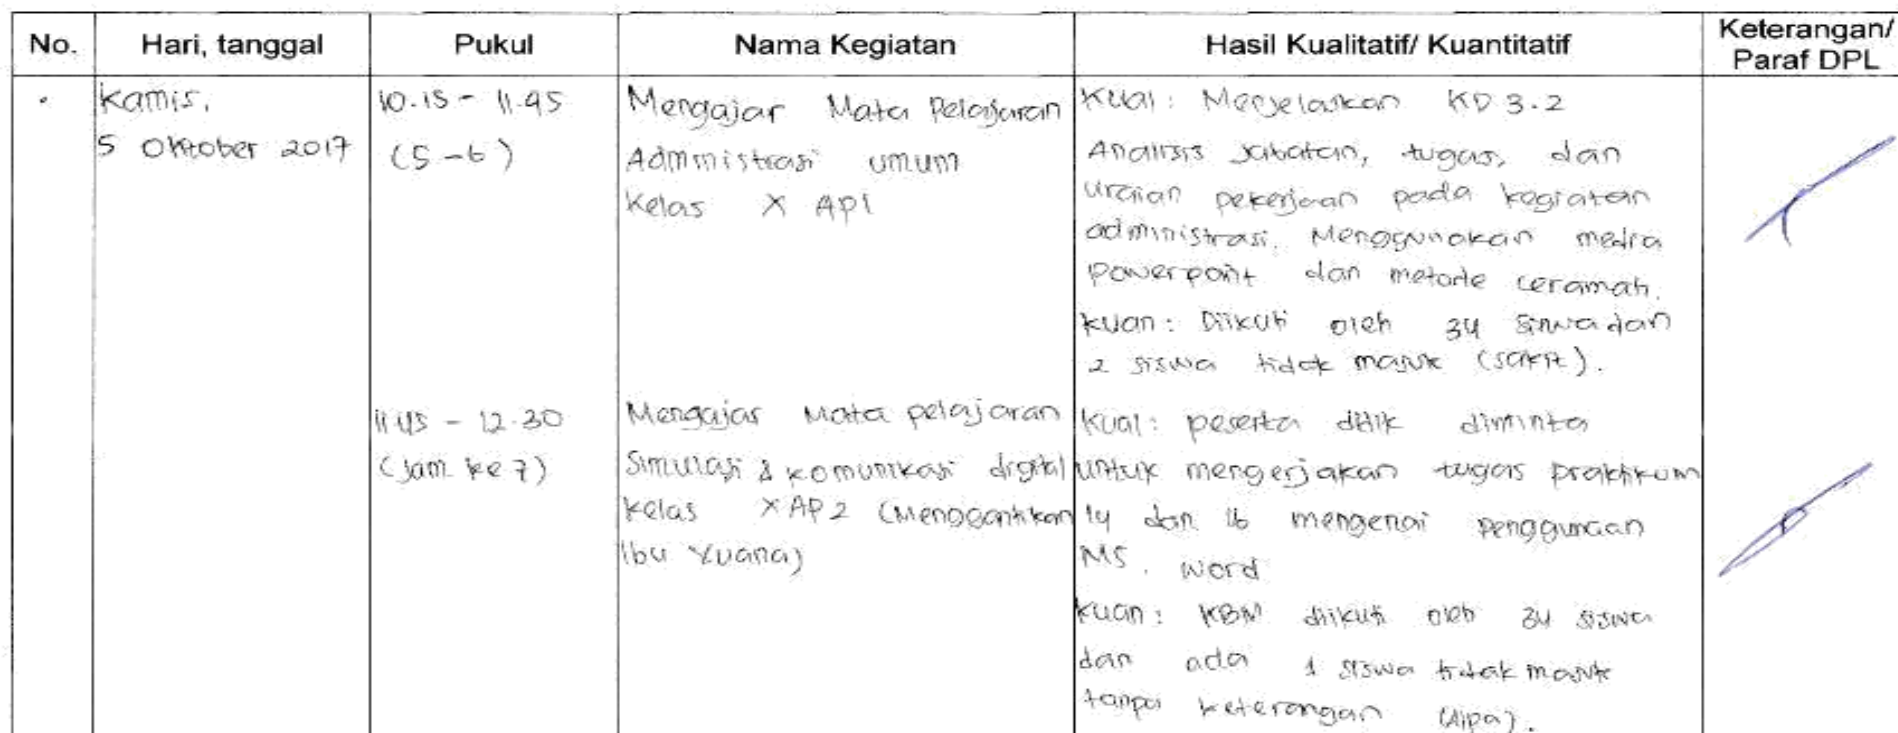 No. Hari, tanggal Pukul Nama Kegiatan Hasil Kualitatif/ Kuantitatif Keterangan/ Paraf DPL
Kamis,
5 Oktober 2017
10.15 - 11.45
(5-6)
Mengajar Mata Pelajaran
Administrasi umum
Kelas X AP1
Kual: Menjelaskan KD 3.2
Analisis Jabatan, tugas, dan
uraian pekerjaan pada kegiatan
administrasi. Menggunakan media
powerpoint dan metode ceramah.
kuan: Diikuti oleh 34 siswa dan
2 siswa tidak masuk (sakit).
11.45 - 12.30
(Jam ke 7)
Mengajar Mata pelajaran
Simulasi & komunikasi digital
kelas X AP2 (Menggantikan
Ibu Yuana)
Kual: peserta didik diminta
untuk mengerjakan tugas praktikum
14 dan 16 mengenai penggunaan
MS. Word
kuan: KBM diikuti oleh 34 siswa
dan ada 1 siswa tidak masuk
tanpa keterangan (Alpa).